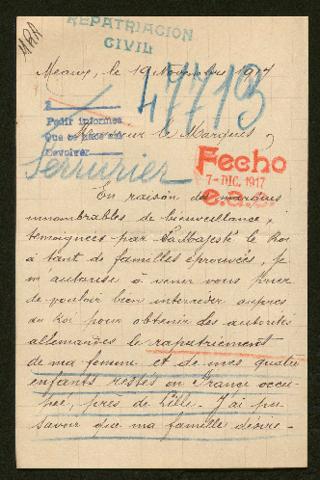 REPATRIACION
CIVIL
Meaux, le 19 Novembre 1917
47713
Pedir informes
Que se hace
Devolver
Monsieur le Marquis,
Serrurier
Fecho
7-DIC. 1917
En raison des marques
innombrables de bienveillance,
témoignées par Sa Majesté le Roi
à tant de familles éprouvées, je
m'autorise à venir vous prier
de vouloir bien intercéder auprès
du Roi pour obtenir des autorités
allemandes le rapatriement
de ma femme et de mes quatre
enfants restés en France occu-
pée, près de Lille. J'ai pu
savoir que ma famille désire-